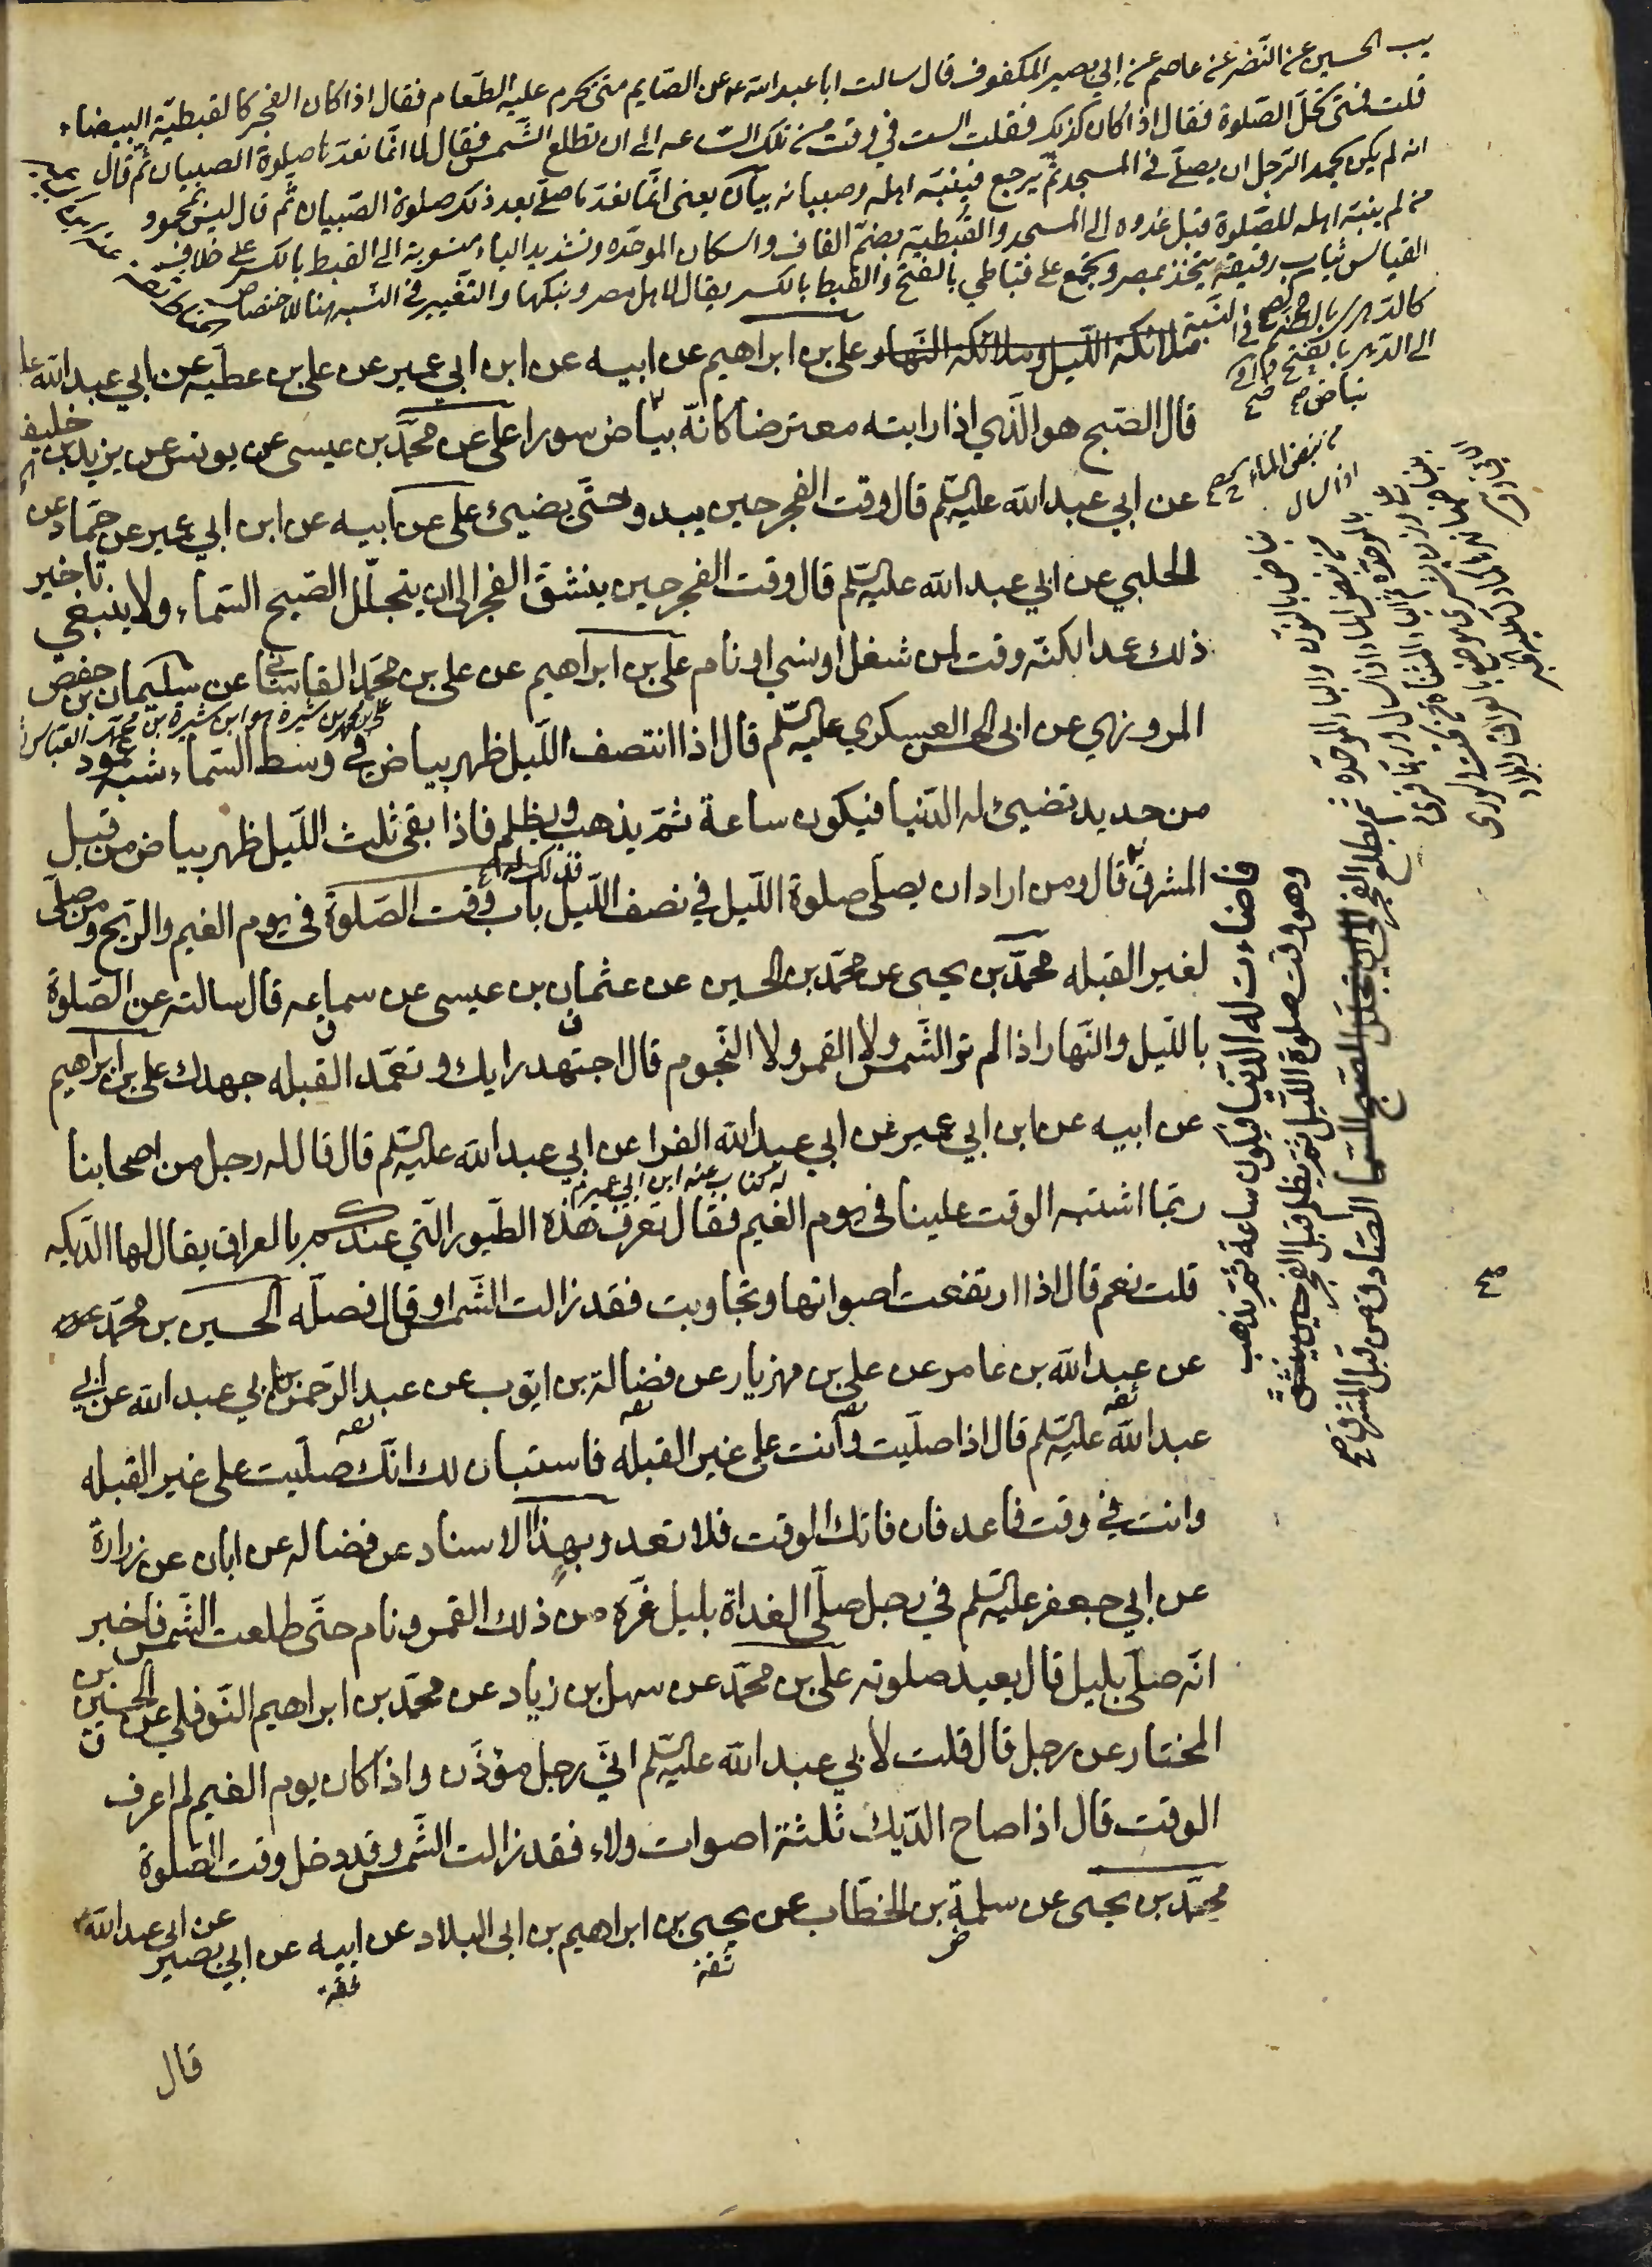 يب الحسين عن النضر عن عاصم عن ابي بصير المكفوف قال سالت ابا عبد الله ع عن الصايم متى يحرم عليه الطعام فقال اذا كان الفجر كالقبطية البيضاء
قلت فمتى تحل الصلوة فقال اذا كان كذلك فقلت الست في وقت من تلك الساعه الى ان تطلع الشمس فقال لا انما نعدها صلوة الصبيان ثم قال
انه لم يكن يحمد الرجل ان يصلي في المسجد ثم يرجع فينبه اهله وصبيانه بيان يعني انما نعد ما صلى بعد ذلك صلوة الصبيان ثم قال ليس بمحمود
من لم ينبه اهله للصلوة قبل غدوه الى المسجد والقبطية بضم القاف واسكان الموحده وتشديد الياء منسوبة الى القبط بالكسر على خلاف
القياس ثياب رقيقة يتخذ بمصر وتجمع على قباطي بالفتح والقبط بالكسر يقال لاهل مصر وبنكها والتغيير في النسبه هنا للاختصاص
كالدهري بالضم في النسبة
الى الدهر بالفتح
ملائكة الليل وملائكة النهار علي بن ابراهيم عن ابيه عن ابن ابي عمير عن علي بن عطيه عن ابي عبد الله ع
قال الصبح هو الذي اذا رايته معترضا كانه بياض سورا علي عن محمد بن عيسى عن يونس عن يزيد بن خليفه
عن ابي عبد الله عليه السلم قال وقت الفجر حين يبدو حتى يضيئ علي عن ابيه عن ابن ابي عمير عن حماد عن
الحلبي عن ابي عبد الله عليه السلم قال وقت الفجر حين ينشق الفجر الى ان يتجلل الصبح السماء ولا ينبغي تاخير
ذلك عمدا لكنه وقت لمن شغل او نسي او نام علي بن ابراهيم عن علي بن محمد القاساني عن سليمان بن حفص
المروزي عن ابي الحسن العسكري عليه السلم قال اذا انتصف الليل ظهر بياض في وسط السماء شبه عمود
من حديد تضيئ له الدنيا فيكون ساعة ثم يذهب ويظلم فاذا بقى ثلث الليل ظهر بياض من قبل
المشرق قال ومن اراد ان يصلي صلوة الليل في نصف الليل فذلك له باب وقت الصلوة في يوم الغيم والريح ومن صلى
لغير القبله محمد بن يحيى عن محمد بن الحسين عن عثمان بن عيسى عن سماعه قال سالته عن الصلوة
بالليل والنهار اذا لم تر الشمس ولا القمر ولا النجوم قال اجتهد رايك وتعمد القبله جهدك علي بن ابراهيم
عن ابيه عن ابن ابي عمير عن ابي عبد الله الفرا عن ابي عبد الله عليه السلم قال قال له رجل من اصحابنا
له كتاب عنه ابن ابي عمير
ربما اشتبه الوقت علينا في يوم الغيم فقال تعرف هذه الطيور التي عندكم بالعراق يقال لها الديكه
قلت نعم قال اذا ارتفعت اصواتها وتجاوبت فقد زالت الشمس او قال فصله الحسين بن محمد
عن عبد الله بن عامر عن علي بن مهزيار عن فضالة بن ايوب عن عبد الرحمن بن ابي عبد الله عن ابي
عبد الله عليه السلم قال اذا صليت وانت على غير القبله فاستبان لك انك صليت على غير القبله
وانت في وقت فاعد فان فاتك الوقت فلا تعد وبهذا الاسناد عن فضاله عن ابان عن زرارة
عن ابي جعفر عليه السلم في رجل صلى الغداة بليل غره من ذلك القمر ونام حتى طلعت الشمس فاخبر
انه صلى بليل قال يعيد صلوته علي بن محمد عن سهل بن زياد عن محمد بن ابراهيم النوفلي عن الحسين بن
المختار عن رجل قال قلت لابي عبد الله عليه السلم اني رجل مؤذن واذا كان يوم الغيم لم اعرف
الوقت قال اذا صاح الديك ثلثة اصوات ولاء فقد زالت الشمس وقد دخل وقت الصلوة
محمد بن يحيى عن سلمة بن الخطاب عن يحيى بن ابراهيم بن ابي البلاد عن ابيه عن ابي بصير عن ابي عبد الله
ثقة
ثقة
قال
فاضاءت له الدنيا فيكون ساعة ثم يذهب
وهو وقت صلوة الليل ثم يظلم قبل الفجر حين ينشق
ثم يطلع الفجر الى ان يتجلل الصبح السما الصادق من قبل المشرق صح